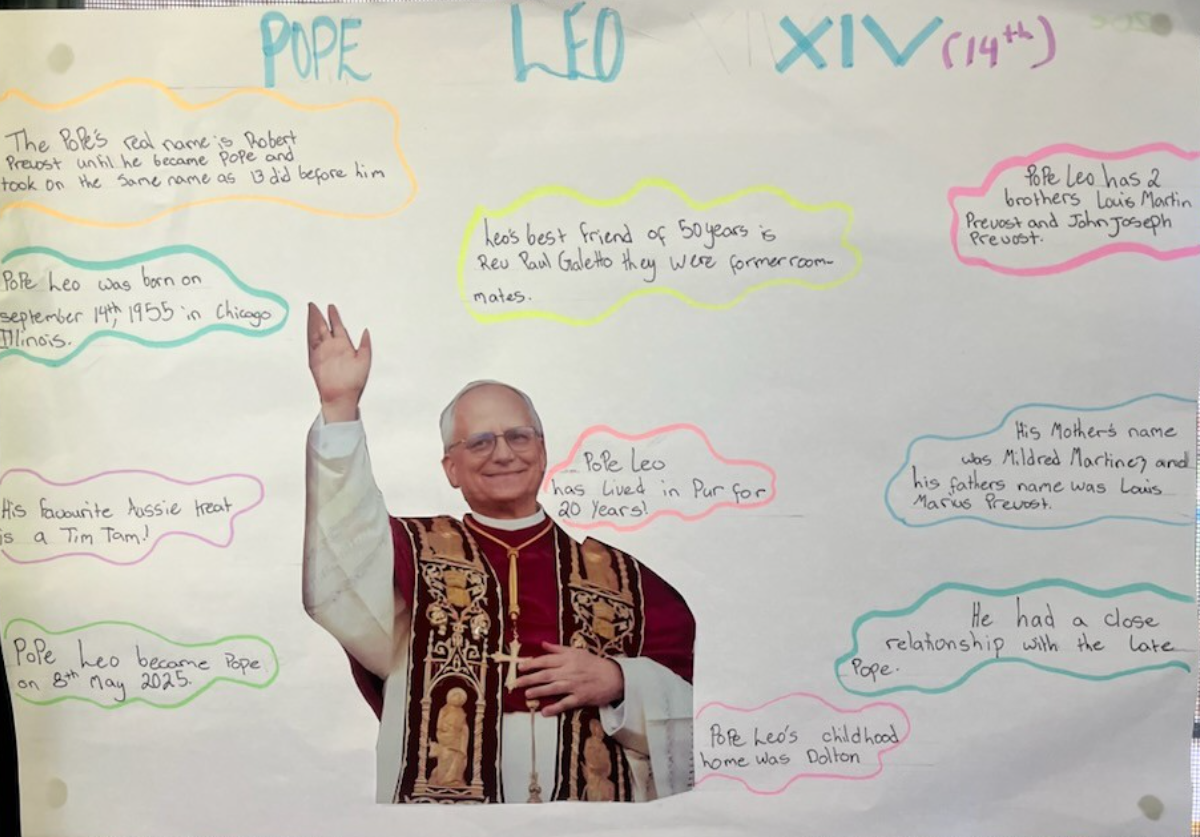 POPE LEO XIV (14th)
The Pope's real name is Robert
Prevost until he became Pope and
took on the same name as 13 did before him
Leo's best friend of 50 years is
Rev Paul Galetto they were former room-
mates.
Pope Leo has 2
brothers Louis Martin
Prevost and John Joseph
Prevost.
Pope Leo was born on
september 14th, 1955 in Chicago
Illinois.
Pope Leo
has lived in Pur for
20 years!
His Mother's name
was Mildred Martinez and
his fathers name was Louis
Marius Prevost.
His favourite Aussie treat
is a Tim Tam!
He had a close
relationship with the late
Pope.
Pope Leo became Pope
on 8th May 2025.
Pope Leo's childhood
home was Dolton